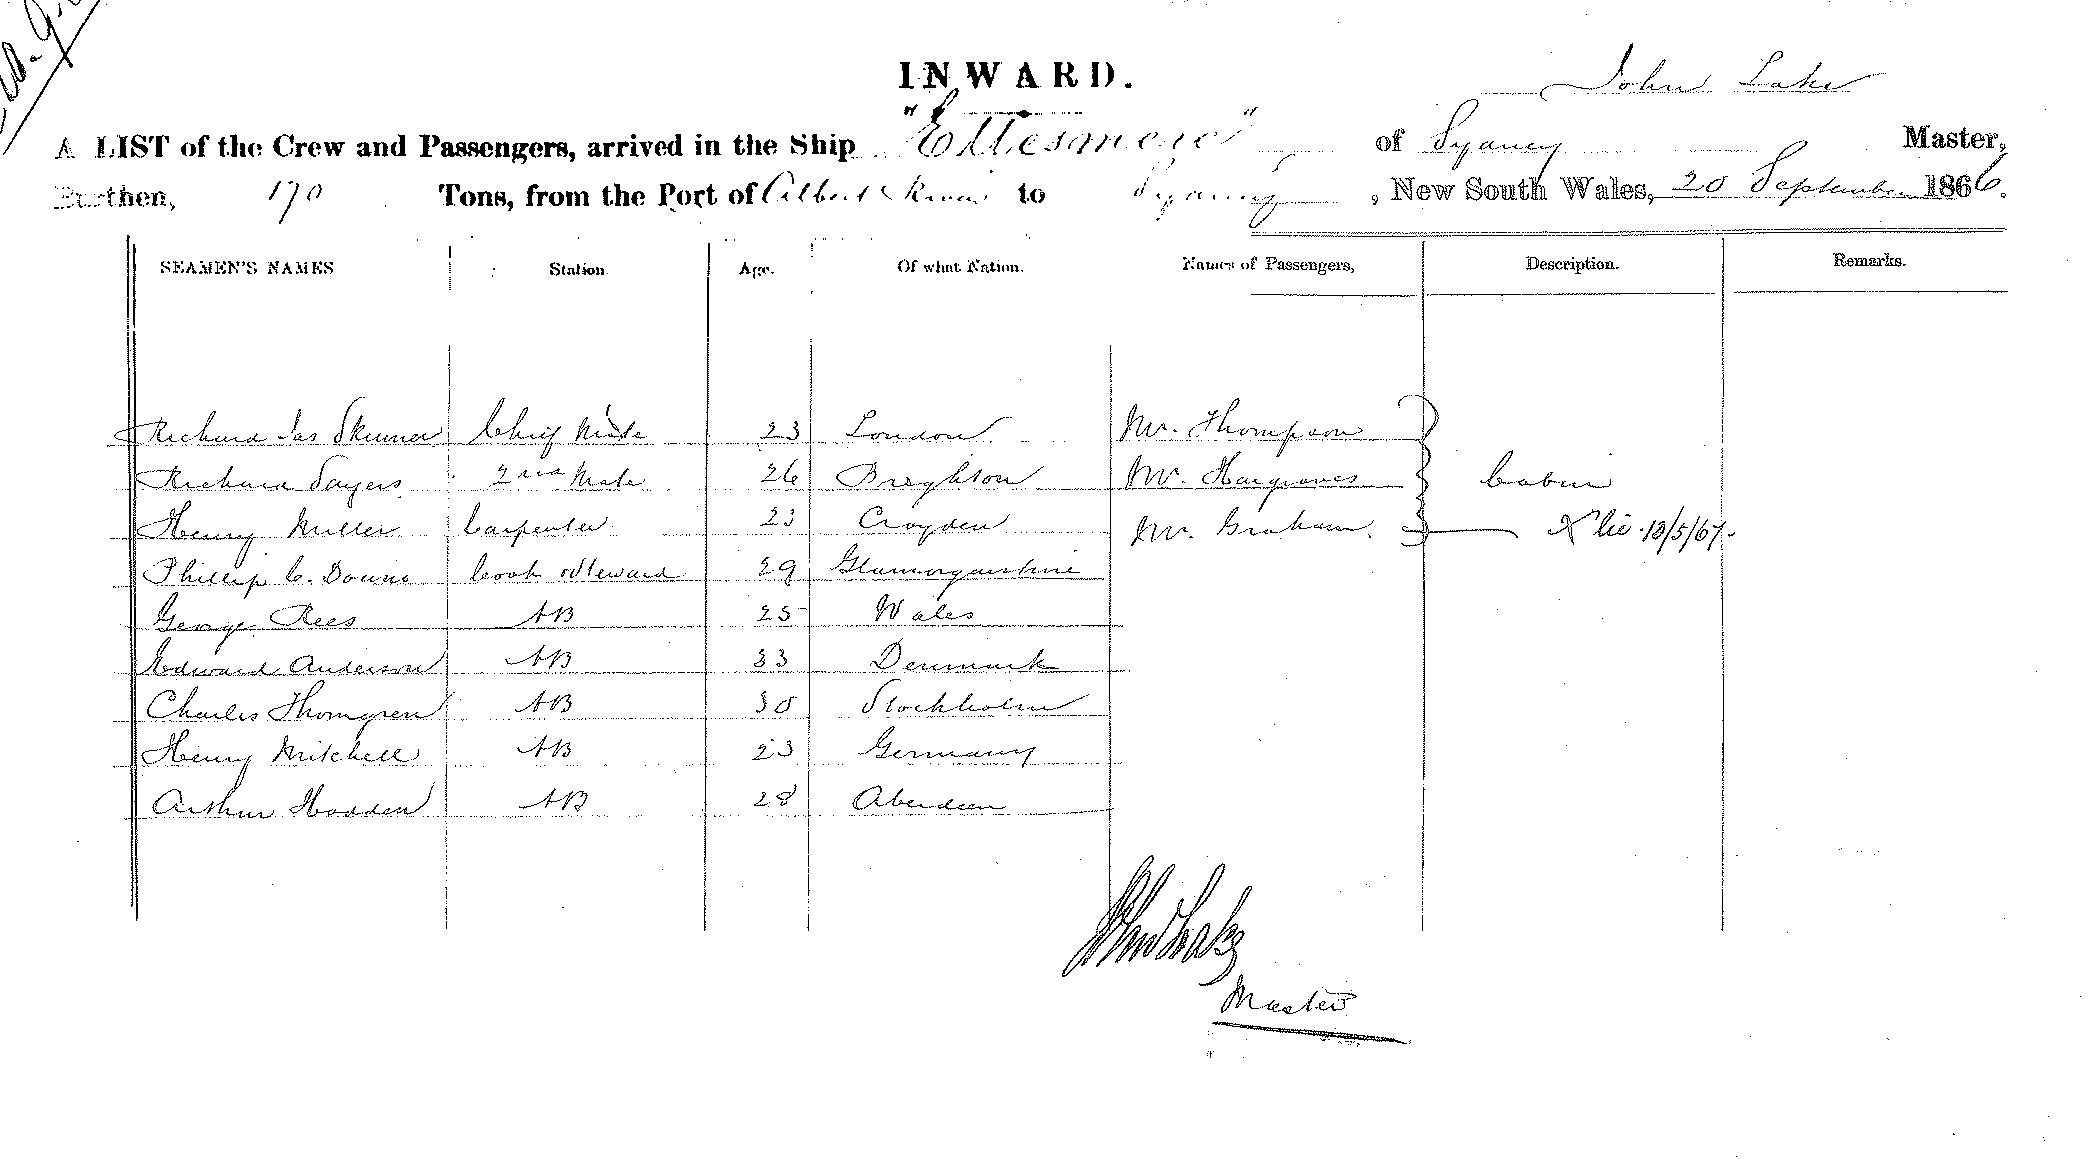 INWARD.
John Lake
A LIST of the Crew and Passengers, arrived in the Ship "Ellesmere" of Sydney Master,
Burthen, 170 Tons, from the Port of Albert River to Sydney, New South Wales, 20 September 1866.
SEAMEN'S NAMES Station Age. Of what Nation. Names of Passengers, Description. Remarks.
Richard Jas Skinner Chief Mate 23 London Mr. Thompson
Richard Sayers 2nd Mate 26 Brighton Mr. Hargraves Cabin
Henry Miller Carpenter 23 Croyden Mr. Graham. 10/5/67.
Phillip C. Cook & Steward 29 Glamorganshire
George Rees AB 25 Wales
Edward Anderson AB 33 Denmark
Charles Thomgren AB 30 Stockholm
Henry Mitchell AB 23 Germany
Arthur Hadden AB 28 Aberdeen
John Lake
Master